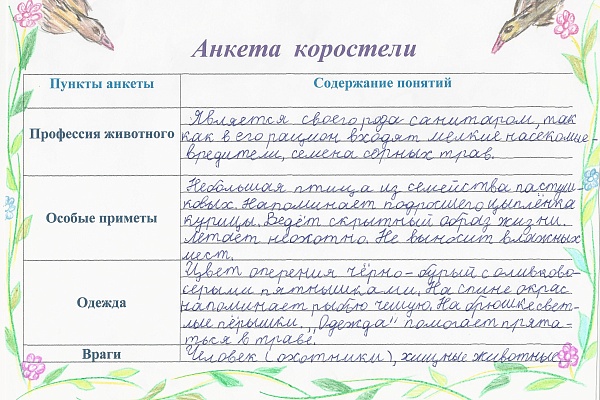 Анкета коростели
Пункты анкеты Содержание понятий
Профессия животного
Является своего рода санитаром, так
как в его рацион входят мелкие насекомые-
вредители, семена сорных трав.
Особые приметы
Небольшая птица из семейства пастуш-
ковых. Напоминает подросшего цыплёнка
курицы. Ведёт скрытный образ жизни.
Летает неохотно. Не выносит влажных
мест.
Одежда
Цвет оперения чёрно-бурый с оливково-
серыми пятнышками. На спине окрас
напоминает рыбью чешую. На брюшке свет-
лые пёрышки. "Одежда" помогает прята-
ться в траве.
Враги Человек (охотники), хищные животные